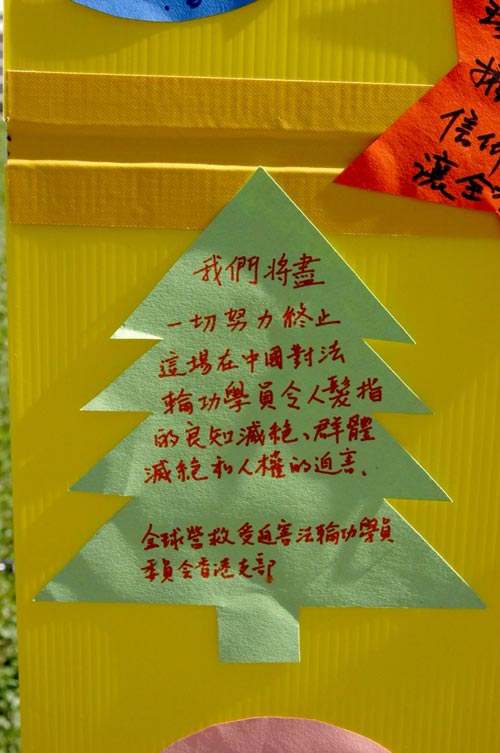 我們將盡
一切努力終止
這場在中國對法
輪功學員令人髮指
的良知滅絕、群體
滅絕和人權的迫害、
全球營救受迫害法輪功學員
委員會香港支部
信仰
讓全